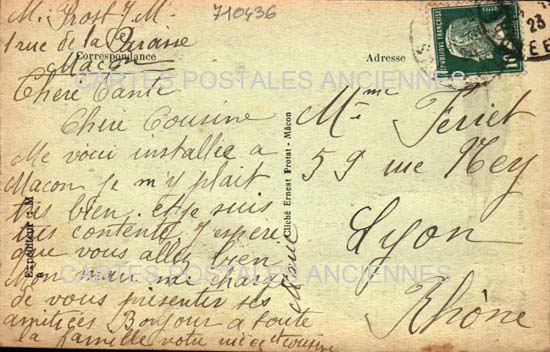 M. Prost J M
1 rue de la Paroisse
Macon
710436
Correspondance
Adresse
CARTES POSTALES ANCIENNES
Chere Tante
Chere Cousine
Me voici installée a
Macon je m'y plait
très bien et je suis
très contente j'espère
que vous allez bien
Mon mari me charge
de vous présenter ses
amitiées Bonjour a toute
la famille votre nièce et cousine
Expéditeur
Cliché Ernest Protat - Mâcon
Mme Feriet
59 rue Ney
Lyon
Rhône
CARTES POSTALES ANCIENNES
POSTES
REPUBLIQUE FRANÇAISE
10
23